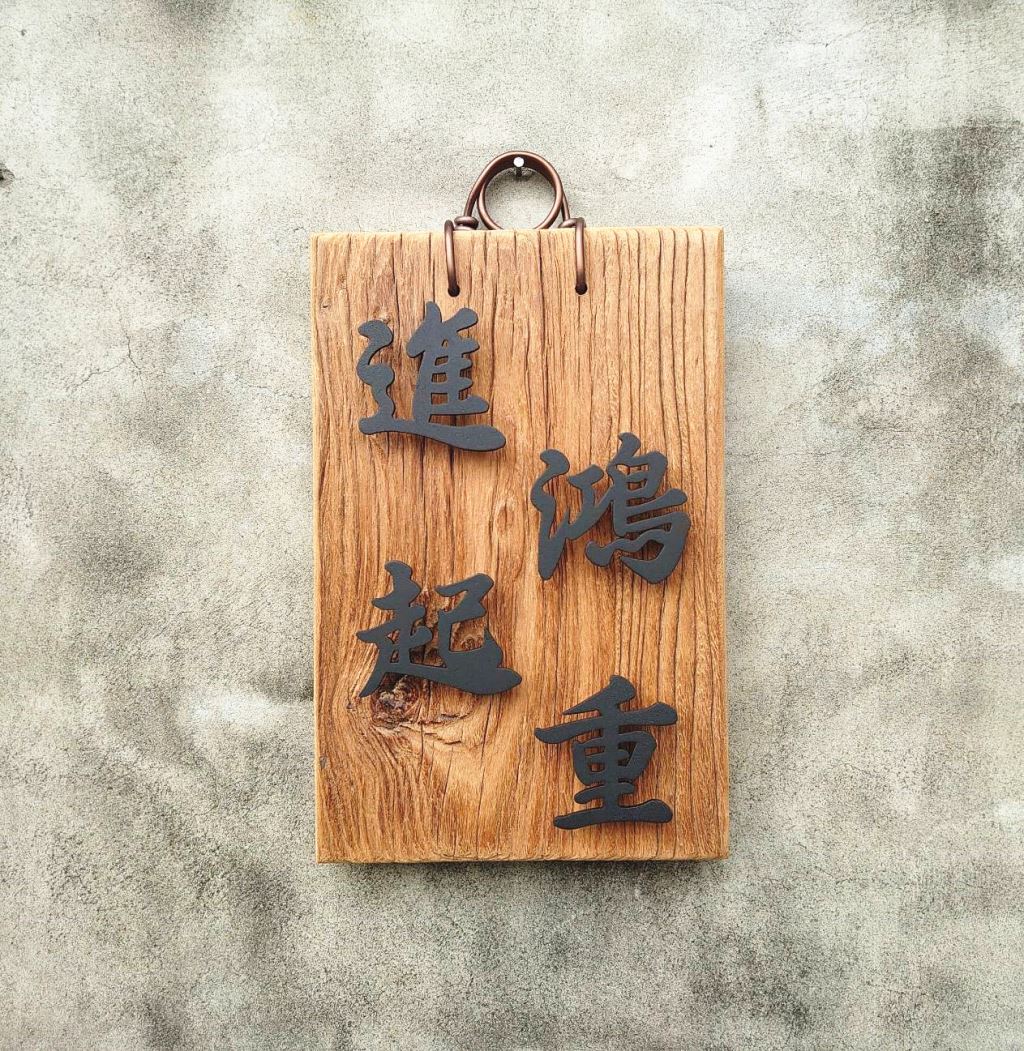 進鴻
起重